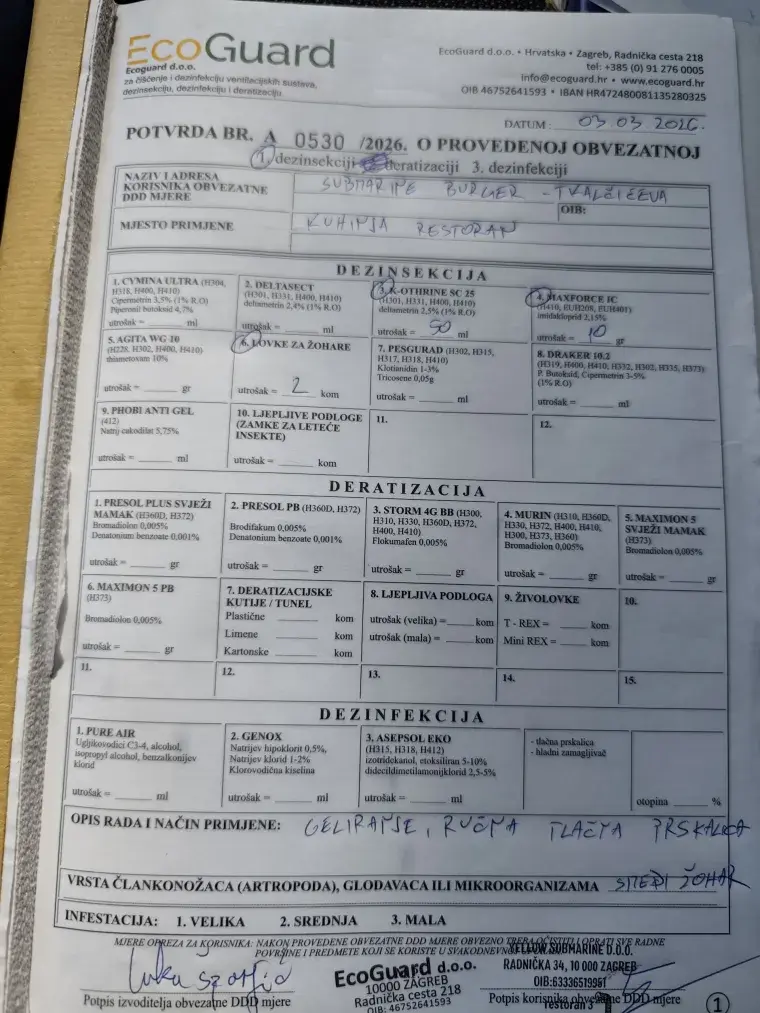 EcoGuard
Ecoguard d.o.o.
za čišćenje i dezinfekciju ventilacijskih sustava,
dezinsekciju, dezinfekciju i deratizaciju.
EcoGuard d.o.o. • Hrvatska • Zagreb, Radnička cesta 218
tel: +385 (0) 91 276 0005
info@ecoguard.hr • www.ecoguard.hr
OIB 46752641593 • IBAN HR472480081135280325
DATUM: 03.03.2026.
POTVRDA BR. A 0530 /2026. O PROVEDENOJ OBVEZATNOJ
1. dezinsekciji deratizaciji 3. dezinfekciji
NAZIV I ADRESA
KORISNIKA OBVEZATNE
DDD MJERE
SUBMARINE BURGER - TKALČIĆEVA
OIB:
MJESTO PRIMJENE
KUHINJA RESTORAN
DEZINSEKCIJA
1. CYMINA ULTRA (H304,
H318, H400, H410)
Cipermetrin 3,5% (1% R.O)
Piperonil butoksid 4,7%
utrošak = ml
2. DELTASECT
(H301, H331, H400, H410)
deltametrin 2,4% (1% R.O)
utrošak = ml
3. K-OTHRINE SC 25
(H301, H331, H400, H410)
deltametrin 2,5% (1% R.O)
utrošak = 50 ml
4. MAXFORCE IC
(H410, EUH208, EUH401)
imidakloprid 2,15%
utrošak = 10 gr
5. AGITA WG 10
(H228, H302, H400, H410)
thiametoxam 10%
utrošak = gr
6. LOVKE ZA ŽOHARE
utrošak = 2 kom
7. PESGURAD (H302, H315,
H317, H318, H410)
Klotianidin 1-3%
Tricosene 0,05g
utrošak = ml
8. DRAKER 10.2
(H319, H400, H410, H332, H302, H335, H373)
P. Butoksid, Cipermetrin 3-5%
(1% R.O)
utrošak = ml
9. PHOBI ANTI GEL
(412)
Natrij cakodilat 5,75%
utrošak = ml
10. LJEPLJIVE PODLOGE
(ZAMKE ZA LETEĆE
INSEKTE)
utrošak = kom
11.
12.
DERATIZACIJA
1. PRESOL PLUS SVJEŽI
MAMAK (H360D, H372)
Bromadiolon 0,005%
Denatonium benzoate 0,001%
utrošak = gr
2. PRESOL PB (H360D, H372)
Brodifakum 0,005%
Denatonium benzoate 0,001%
utrošak = gr
3. STORM 4G BB (H300,
H310, H330, H360D, H372,
H400, H410)
Flokumafen 0,005%
utrošak = gr
4. MURIN (H310, H360D,
H330, H372, H400, H410,
H300, H373, H360)
Bromadiolon 0,005%
utrošak = gr
5. MAXIMON 5
SVJEŽI MAMAK
(H373)
Bromadiolon 0,005%
utrošak = gr
6. MAXIMON 5 PB
(H373)
Bromadiolon 0,005%
utrošak = gr
7. DERATIZACIJSKE
KUTIJE / TUNEL
Plastične kom
Limene kom
Kartonske kom
8. LJEPLJIVA PODLOGA
utrošak (velika) = kom
utrošak (mala) = kom
9. ŽIVOLOVKE
T - REX = kom
Mini REX = kom
10.
11.
12.
13.
14.
15.
DEZINFEKCIJA
1. PURE AIR
Ugljikovodici C3-4, alcohol,
isopropyl alcohol, benzalkonijev
klorid
utrošak = ml
2. GENOX
Natrijev hipoklorit 0,5%,
Natrijev klorid 1-2%
Klorovodična kiselina
utrošak = ml
3. ASEPSOL EKO
(H315, H318, H412)
izotridekanol, etoksiliran 5-10%
didecildimetilamonijklorid 2,5-5%
utrošak = ml
- tlačna prskalica
- hladni zamagljivač
otopina %
OPIS RADA I NAČIN PRIMJENE: GELIRANJE, RUČNA TLAČNA PRSKALICA
VRSTA ČLANKONOŽACA (ARTROPODA), GLODAVACA ILI MIKROORGANIZAMA SMEĐI ŽOHAR
INFESTACIJA: 1. VELIKA 2. SREDNJA 3. MALA
MJERE OPREZA ZA KORISNIKA: NAKON PROVEDENE OBVEZATNE DDD MJERE OBVEZNO TREBA OČISTITI I OPRATI SVE RADNE
POVRŠINE I PREDMETE KOJI SE KORISTE U SVAKODNEVNOJ
Luka
EcoGuard d.o.o.
10000 ZAGREB
Radnička cesta 218
OIB: 46752641593
YELLOW SUBMARINE D.O.O.
RADNIČKA 34, 10 000 ZAGREB
OIB:63336519951
restoran 3
Potpis izvoditelja obvezatne DDD mjere
Potpis korisnika obvezatne DDD mjere
1